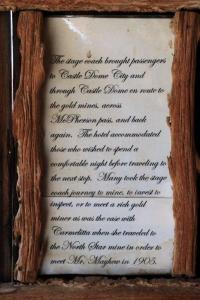 The stage coach brought passengers
to Castle Dome City and
through Castle Dome en route to
the gold mines, across
McPherson pass, and back
again. The hotel accommodated
those who wished to spend a
comfortable night before traveling to
the next stop. Many took the stage
coach journey to mine, to invest to
inspect, or to meet a rich gold
miner as was the case with
Carmelitta when she traveled to
the North Star mine in order to
meet Mr. Mayhew in 1905.